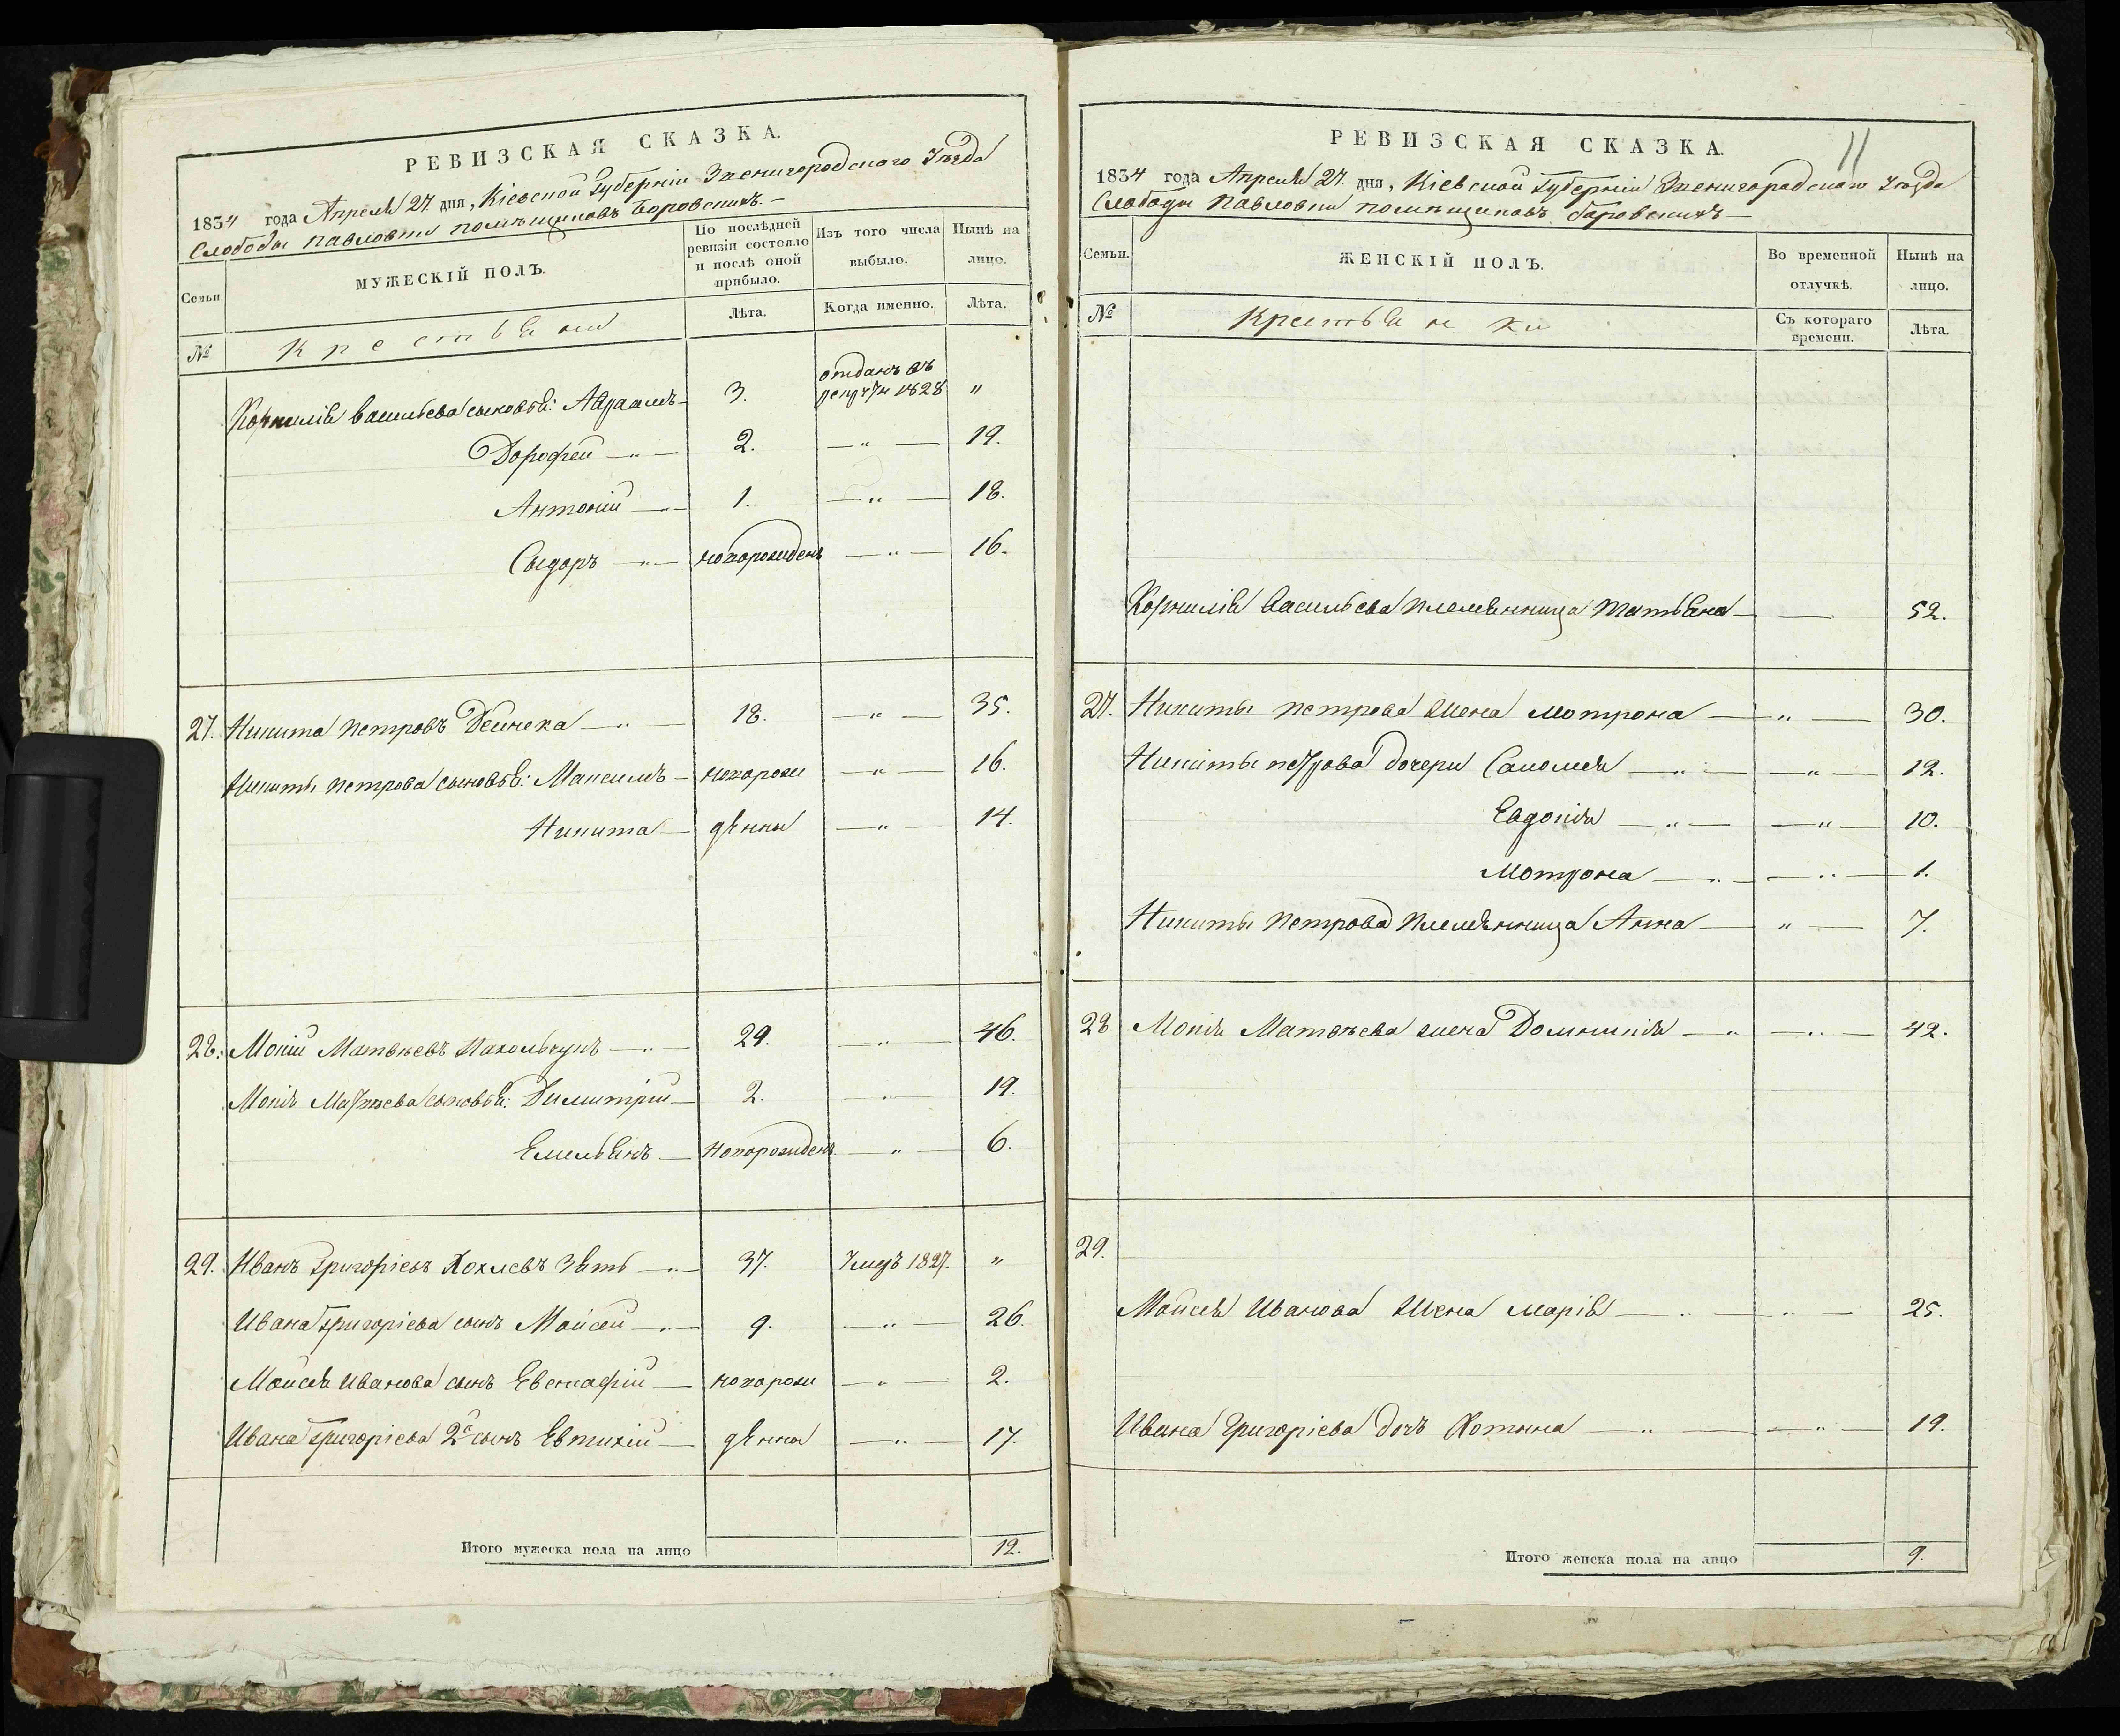 РЕВИЗСКАЯ СКАЗКА.
1834 года Апреля 27. дня, Кіевской Губерніи Звенигородскаго Уѣзда
Слободы Павловки помѣщиковъ Боровскихъ.—
Семьи
МУЖЕСКІЙ ПОЛЪ.
По послѣдней ревизіи состояло и послѣ оной прибыло.
Изъ того числа выбыло.
Нынѣ на лицо.
Лѣта.
Когда именно.
Лѣта.
№
Крестьяни
Корнилія Васильева сыновья: Авраамъ — 3. отданъ въ рекруты 1828 "
Дорофей — " — 2. — " — 19.
Антоній — " — 1. — " — 18.
Сыдоръ — " — новорожденъ — " — 16.
27. Никита Петровъ Дейнека — " — 18. — " — 35.
Никиты Петрова сыновья: Максимъ — новорож — " — 16.
Никита — дѣнны — " — 14.
28. Мокій Матвѣевъ — " — 29. — " — 46.
Мокія Матвѣева сыновья: Димитрій — 2. — 19.
Емельянъ — новорожденъ — " — 6.
29. Иванъ Григоріевъ зять — " — 37. Умеръ 1827. "
Ивана Григоріева сынъ Мойсей — " — 9. — " — 26.
Мойсея Иванова сынъ Евстафій — новорож — " — 2.
Ивана Григоріева 2й сынъ Евтихій — дѣнны — " — 17.
Итого мужеска пола на лицо 12.
РЕВИЗСКАЯ СКАЗКА.
11
1834 года Апреля 27. дня, Кіевской Губерніи Звенигородскаго Уѣзда
Слободы Павловки помѣщиковъ Боровскихъ —
Семьи.
ЖЕНСКІЙ ПОЛЪ.
Во временной отлучкѣ.
Нынѣ на лицо.
№
Крестьянки
Съ котораго времени.
Лѣта.
Корнилія Васильева племянница Татьяна — — 52.
27. Никиты Петрова жена Мотрона — " — 30.
Никиты Петрова дочери Саломея — " — — " — 12.
Евдокія — " — — " — 10.
Мотрона — " — — " — 1.
Никиты Петрова племянница Анна — " — 7.
28 Мокія Матвѣева жена Домникія — " — " — 42.
29.
Мойсея Иванова жена Марія — " — " — 25.
Ивана Григоріева дочъ — " — — " — 19.
Итого женска пола на лицо 9.